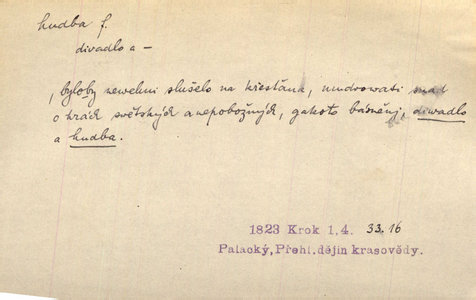 hudba f.
divadlo a –
, byloby newelmi slušelo na křesťana, mudrowati snad
o hrách světských a nepobožných, gakoto básněnj, diwadlo
a hudba.
1823 Krok 1,4. 33.16
Palacký, Přehl. dějin krasovědy.